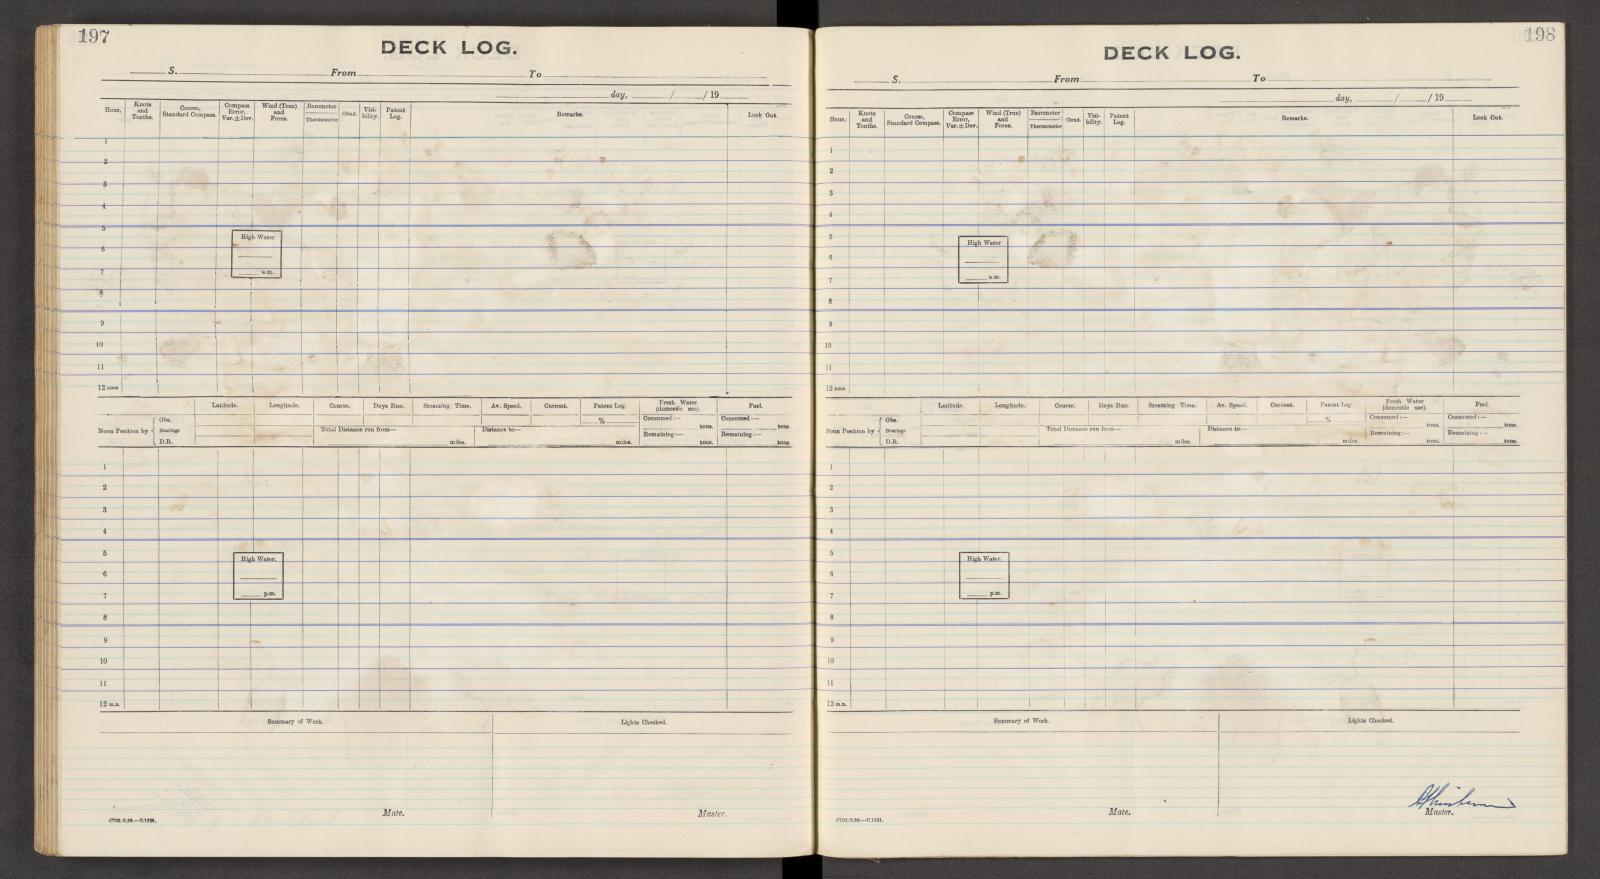 197
DECK LOG.
S. From To
day, / / 19
Hour. Knots and Tenths. Course, Standard Compass. Compass Error, Var.±Dev. Wind (True) and Force. Barometer Thermometer Cloud. Visi-bility. Patent Log. Remarks. Look Out.
1
2
3
4
5
High Water
6
7 a.m.
8
9
10
11
12 noon
Latitude. Longitude. Course. Days Run. Steaming Time. Av. Speed. Current. Patent Log. Fresh Water (domestic use). Fuel.
Noon Position by Obs. Bearings D.R.
% Consumed:— tons. Consumed:— tons.
Total Distance run from— miles. Distance to— miles. Remaining:— tons. Remaining:— tons.
1
2
3
4
5
High Water.
6
7 p.m.
8
9
10
11
12 m.n.
Summary of Work. Lights Checked.
Mate. Master.
198
DECK LOG.
S. From To
day, / / 19
Hour. Knots and Tenths. Course, Standard Compass. Compass Error, Var.±Dev. Wind (True) and Force. Barometer Thermometer Cloud. Visi-bility. Patent Log. Remarks. Look Out.
1
2
3
4
5
High Water
6
7 a.m.
8
9
10
11
12 noon
Latitude. Longitude. Course. Days Run. Steaming Time. Av. Speed. Current. Patent Log. Fresh Water (domestic use). Fuel.
Noon Position by Obs. Bearings D.R.
% Consumed:— tons. Consumed:— tons.
Total Distance run from— miles. Distance to— miles. Remaining:— tons. Remaining:— tons.
1
2
3
4
5
High Water.
6
7 p.m.
8
9
10
11
12 m.n.
Summary of Work. Lights Checked.
Mate. Master.